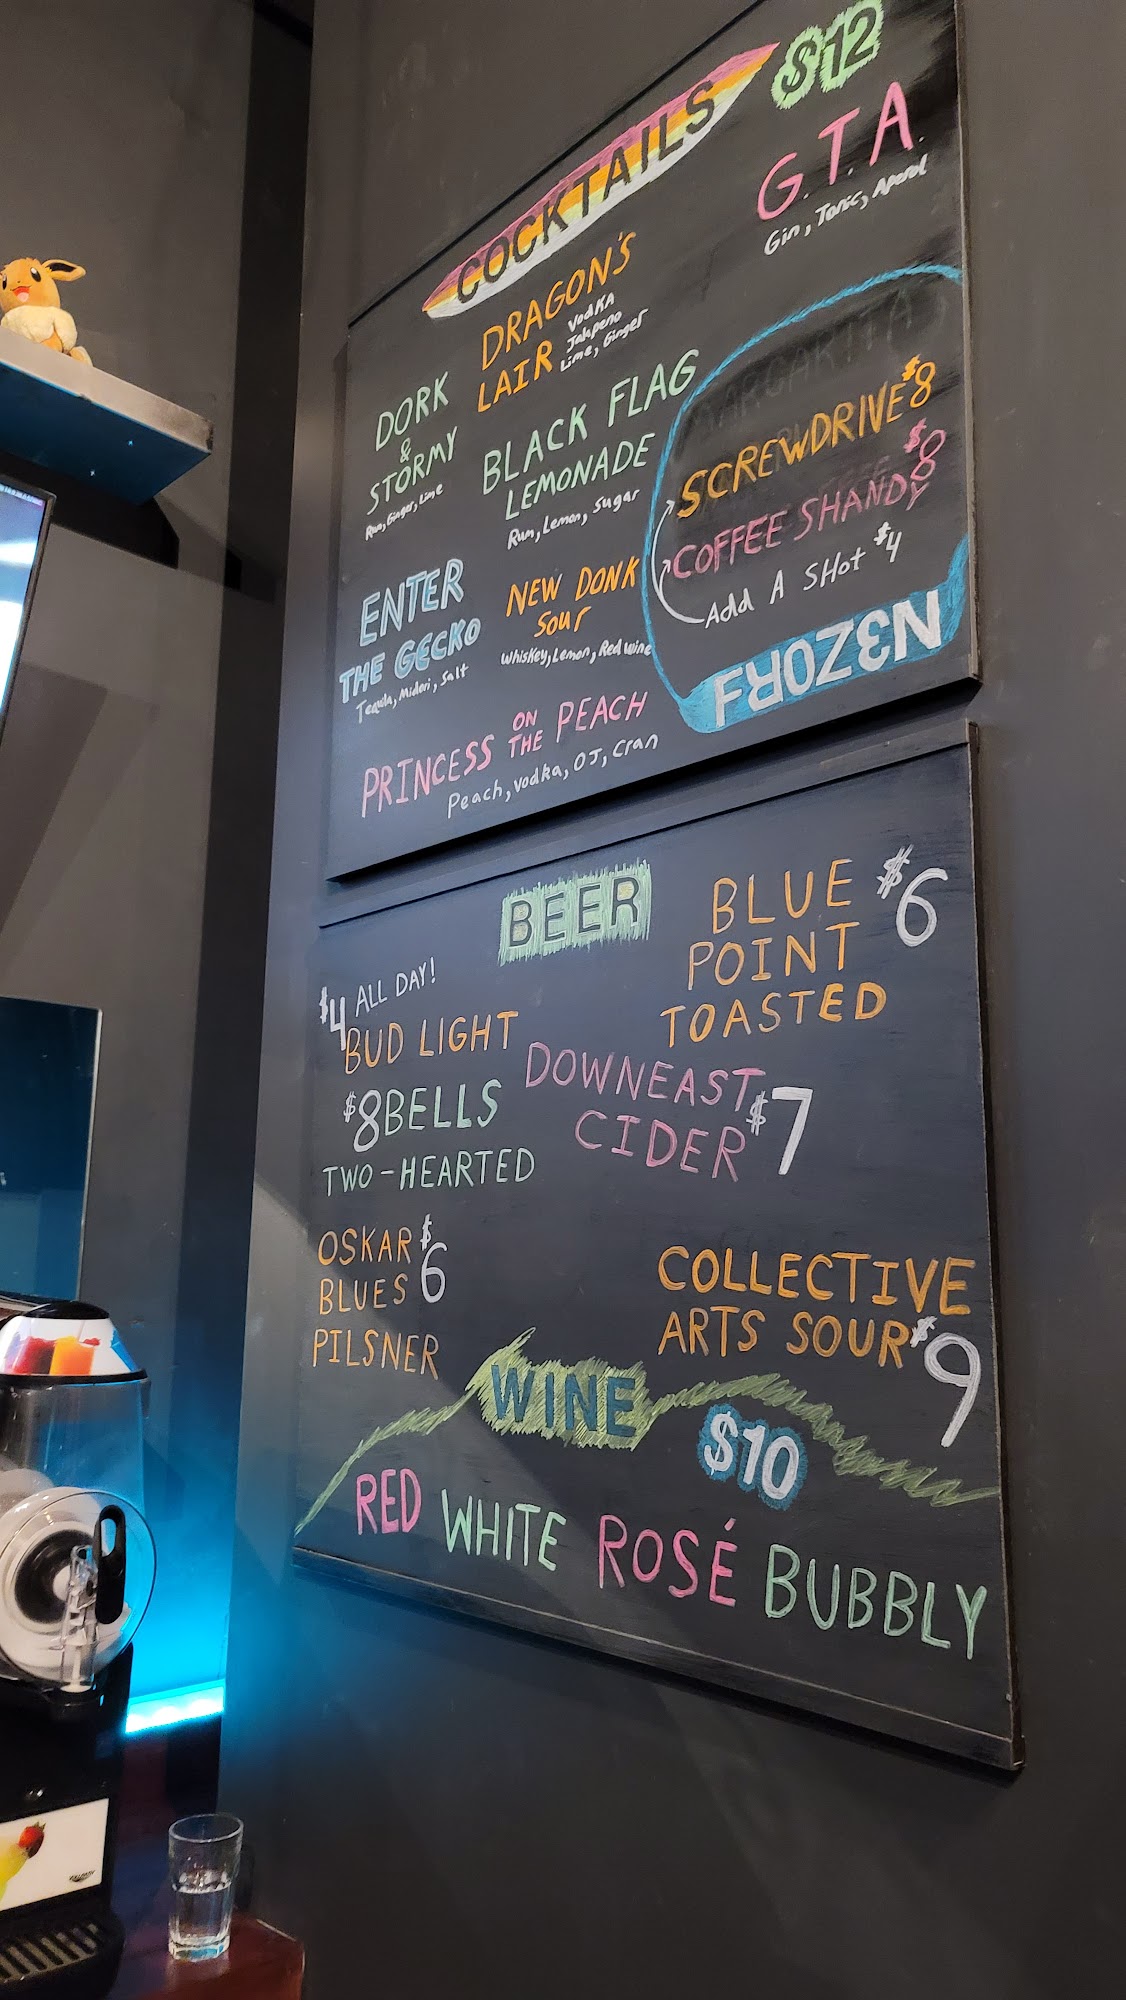 COCKTAILS $12
G.T.A.
Gin, Tonic, Aperol
DRAGON'S
LAIR
Vodka
Jalapeno
Lime, Ginger
DORK
&
STORMY
Rum, Ginger, Lime
BLACK FLAG
LEMONADE
Rum, Lemon, Sugar
ENTER
THE GECKO
Tequila, Midori, Salt
NEW DONK
SOUR
Whiskey, Lemon, Red wine
PRINCESS ON THE PEACH
Peach, vodka, OJ, Cran
MARGARITA
SCREWDRIVE $8
COFFEE SHANDY $8
Add A SHot $4
FROZEN
BEER
$4 ALL DAY!
BUD LIGHT
$8 BELLS
TWO-HEARTED
OSKAR $6
BLUES
PILSNER
BLUE $6
POINT
TOASTED
DOWNEAST
CIDER $7
COLLECTIVE
ARTS SOUR $9
WINE
$10
RED WHITE ROSÉ BUBBLY